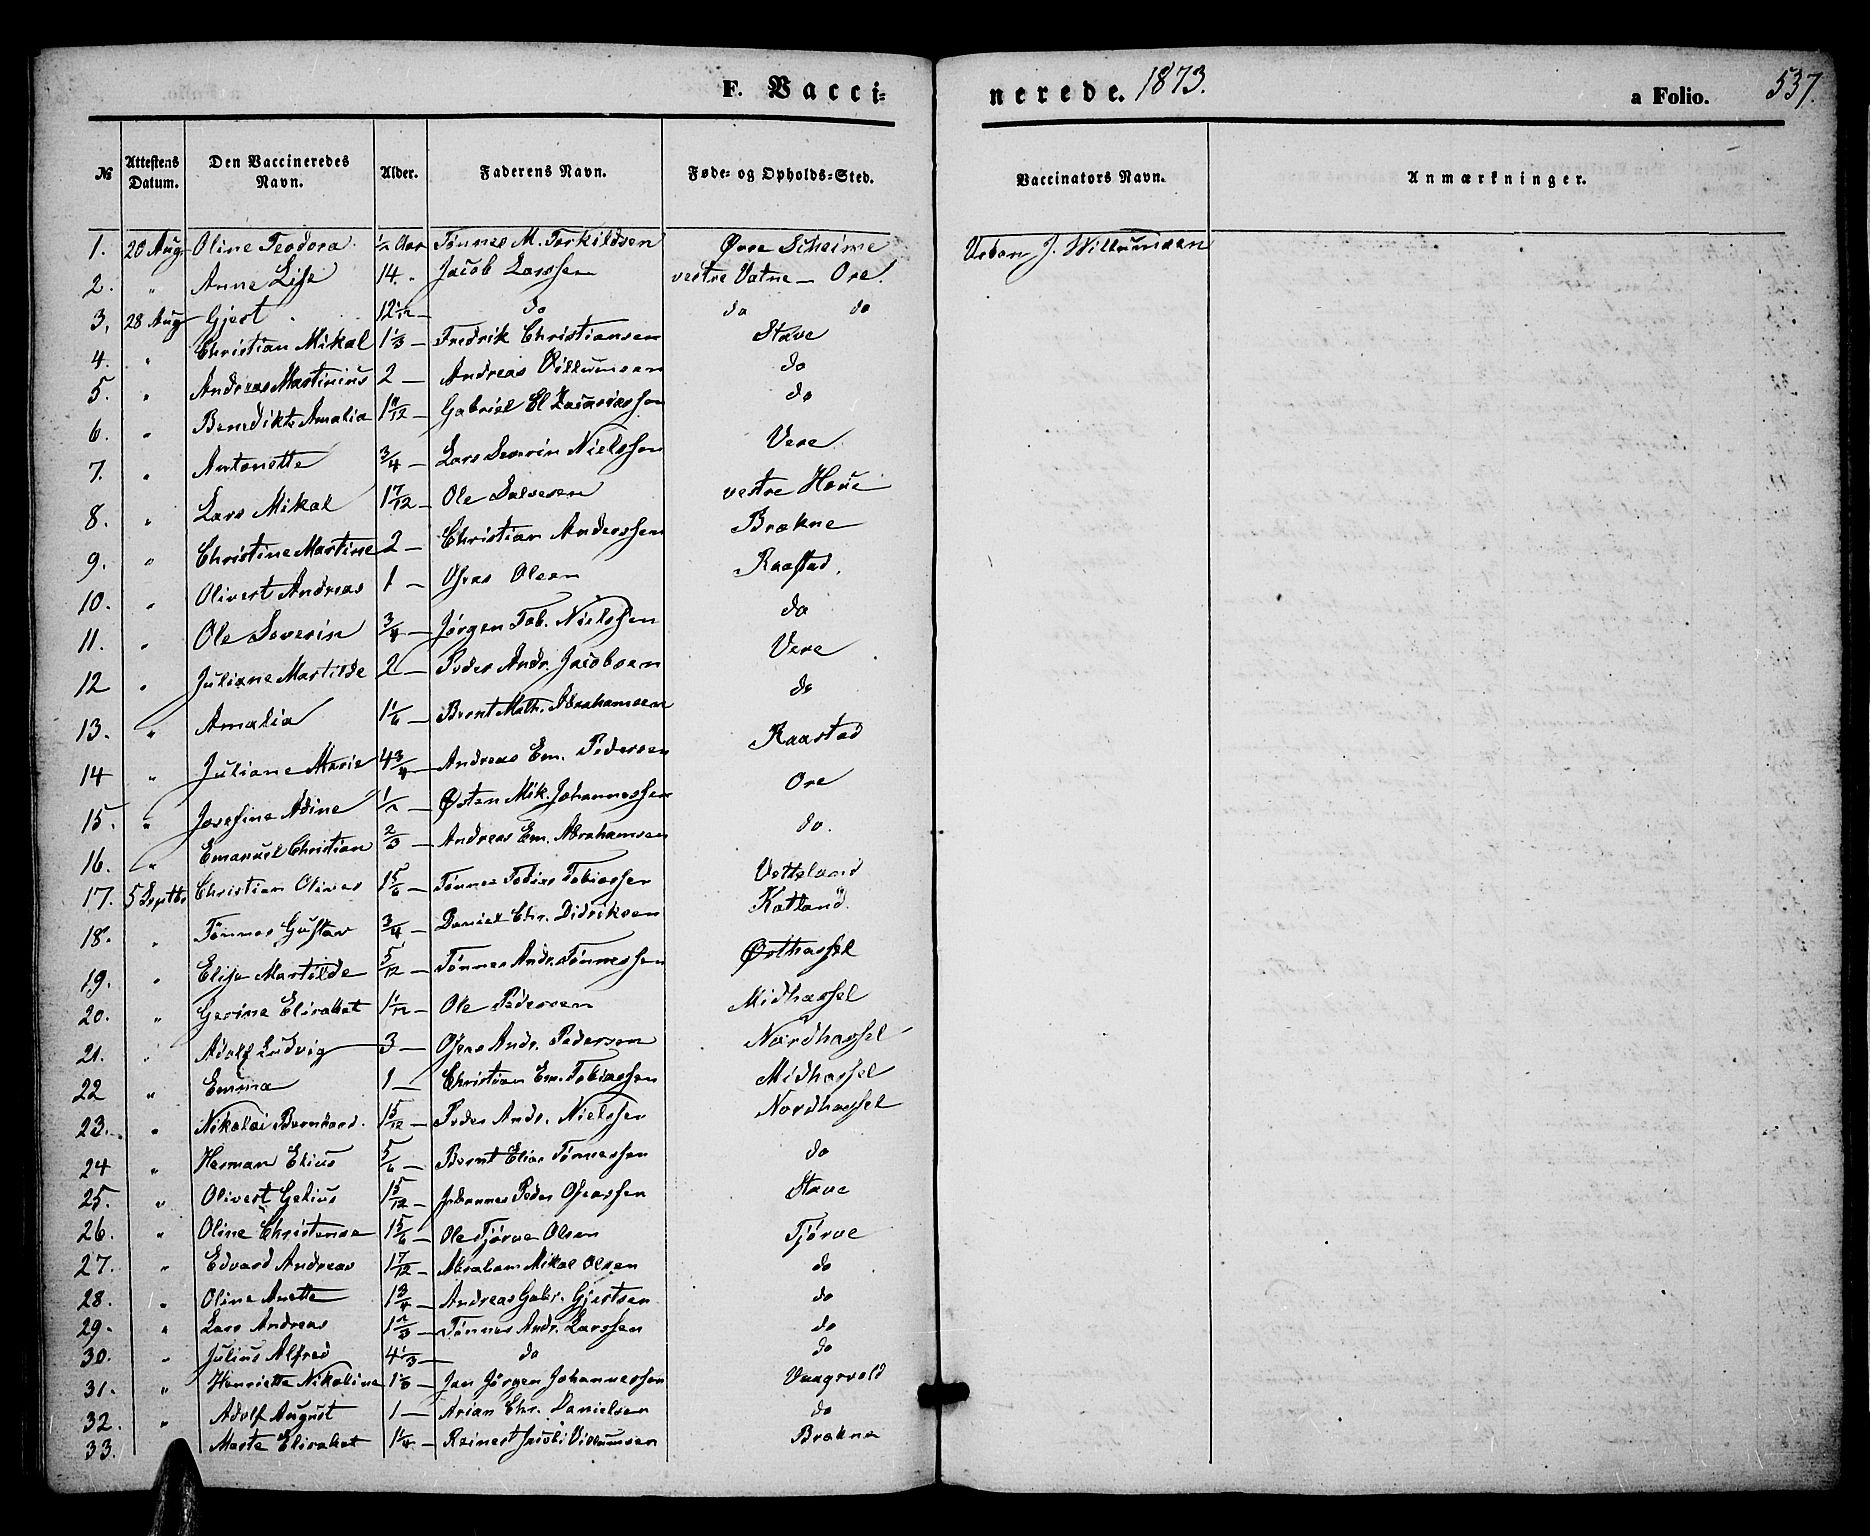 F. Vacci-
nerede. 1873.
a Folio. 537.
№ Attestens Datum. Den Vaccineredes Navn. Alder. Faderens Navn. Føde- og Opholds-Sted. Vaccinators Navn. Anmærkninger.
1. 20 Aug Oline Teodora 1/2 Aar Tønnes M. Torkildsen Øvre Scheime J. Willumsen
2. " Anne Lise 14 " Jacob Larssen vestre Vatne – Ore.
3. 28 Aug Gjert 12 1/2 – do do do
4. " Christian Mikal 1 1/3 – Fredrik Christiansen Stave
5. " Andreas Martinius 2 – Andreas Villumsen do
6. " Benedikte Amalia 1 11/12 – Gabriel El Zacariassen do
7. " Antonette 3/4 – Lars Severin Nielssen Vere
8. " Lars Mikal 1 7/12 – Ole Salvesen vestre Haue
9. " Christine Martine 2 – Christian Anderssen Brækne
10. " Olivert Andreas 1 – Oseas Olsen Raastad.
11. " Ole Severin 3/4 – Jørgen Tob. Nielssen do
12 " Juliane Martilde 2 – Peder Andr. Jacobsen Vere
13. " Amalia 1 1/6 – Bernt Math. Abrahamsen do
14 " Juliane Marie 4 3/4 – Andreas Em. Pedersen Raastad
15. " Josefine Adine 1/2 – Østen Mik. Johannessen Ore
16. " Emanuel Christian 2/3 – Andreas Em. Abrahamsen do.
17. 5 Septbr Christian Oliver 1 5/6 – Tønnes Tobias Tobiassen Vetteland
18. " Tønnes Gustav 3/4 – Daniel Chr. Didriksen Katland.
19. " Elise Martilde 5/12 – Tønnes Andr. Tønnessen Østhassel
20. " Gerine Elisabet 1 1/12 – Ole Pedersen Midhassel
21. " Adolf Ludvig 3 – Oseas Andr. Pedersen Nordhassel
22 " Emma 1 – Christian Em. Tobiassen Midhassel
23. " Nikolai Bernhard. 1 5/12 – Peder Andr. Nielssen Nordhassel
24 " Herman Elius 5/6 – Bernt Elias Tønnessen do
25. " Olivert Gelius 1 5/12 – Johannes Peder Oseassen Stave
26. " Oline Christense 1 5/6 – Ole Tjørve Olsen Tjørve
27. " Edvard Andreas 1 7/12 – Abraham Mikal Olsen do
28. " Oline Anette 1 3/4 – Andreas Gabr. Gjertsen do
29. " Lars Andreas 1 2/3 – Tønnes Andr. Larssen do
30. " Julius Alfred 4 1/3 – do do
31. " Henriette Nikoline 1 1/3 – Jan Jørgen Johannessen Vaagsvold
32. " Adolf August 1 – Arian Chr. Danielsen do
33. Marte Elisabet 1 1/4 – Reinert Jacobi Villumsen Brækne